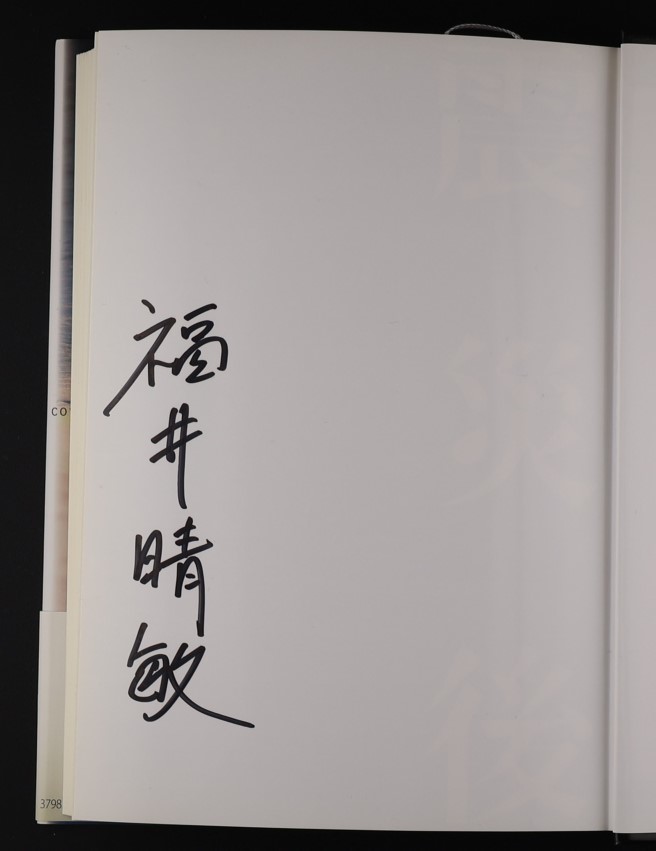 福井晴敏
CO
3798
災
後